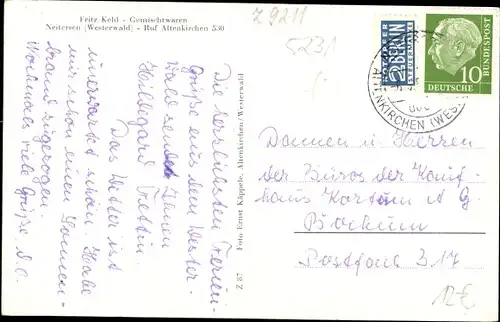 Fritz Keld - Gemischtwaren
Neitersen (Westerwald) - Ruf Altenkirchen 530
Z 9211
523/
Die herzlichsten Ferien-
Grüße aus dem Wester-
wald sendet Ihnen
Hildegard
Das Wetter ist
unerwartet schön. Habe
mir schon einen Sonnen-
brand zugezogen.
Nochmals viele Grüße d. O.
Z 87 Foto Ernst Käppele, Altenkirchen/Westerwald
NOTOPFER
2 BERLIN
STEUERMARKE
DEUTSCHE
BUNDESPOST
10
ALTENKIRCHEN (WES
Damen und Herren
der Büros der Kauf-
haus Kortum A G.
Bochum
Postfach 317
12€